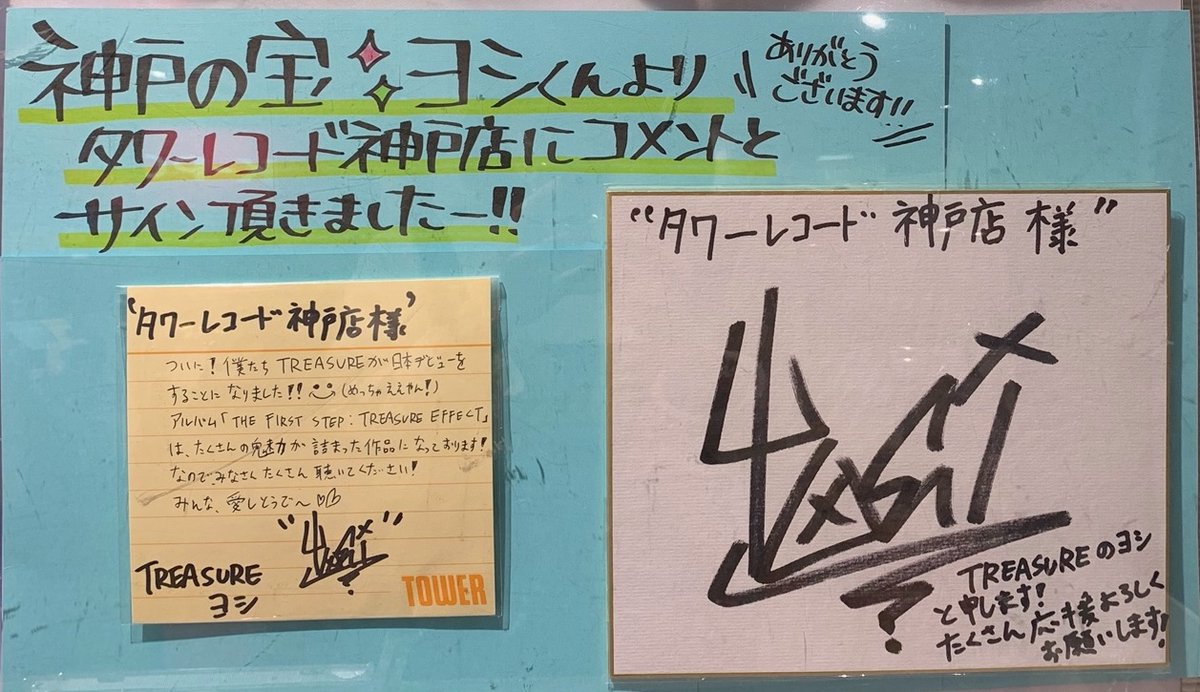 神戸の宝 ヨシくんより
ありがとう
ございます!!
タワーレコード神戸店にコメントと
サイン頂きましたー!!
'タワーレコード 神戸店様'
ついに!僕たち TREASUREが日本デビューを
することに なりました!! (めっちゃええやん!)
アルバム「THE FIRST STEP : TREASURE EFFECT」
は、たくさんの魅力が詰まった作品になっております!
なのでみなさん たくさん 聴いてください!
みんな、愛しとうで〜
TREASURE
ヨシ
TOWER
"タワーレコード 神戸店 様"
TREASUREのヨシ
と申します!
たくさん応援よろしく
お願いします!